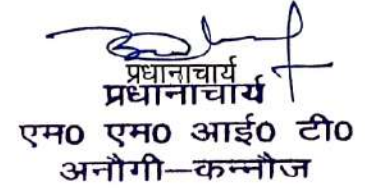 प्रधानाचार्य
प्रधानाचार्य
एम0 एम0 आई0 टी0
अनौगी–कन्नौज